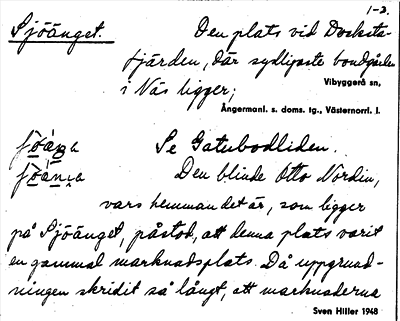 1-2.
Sjöänget. Den plats vid Docksta-
fjärden, där sydligaste bondgården
i Näs ligger;
Vibyggerå sn,
Ångermanl. s. doms. tg., Västernorrl. l.
Se Gatubodliden.
Den blinde Otto Nordin,
vars hemman det är, som ligger
på Sjöänget, påstod, att denna plats varit
en gammal marknadsplats. Då uppgrund-
ningen skridit så långt, att marknaderna
Sven Hiller 1948